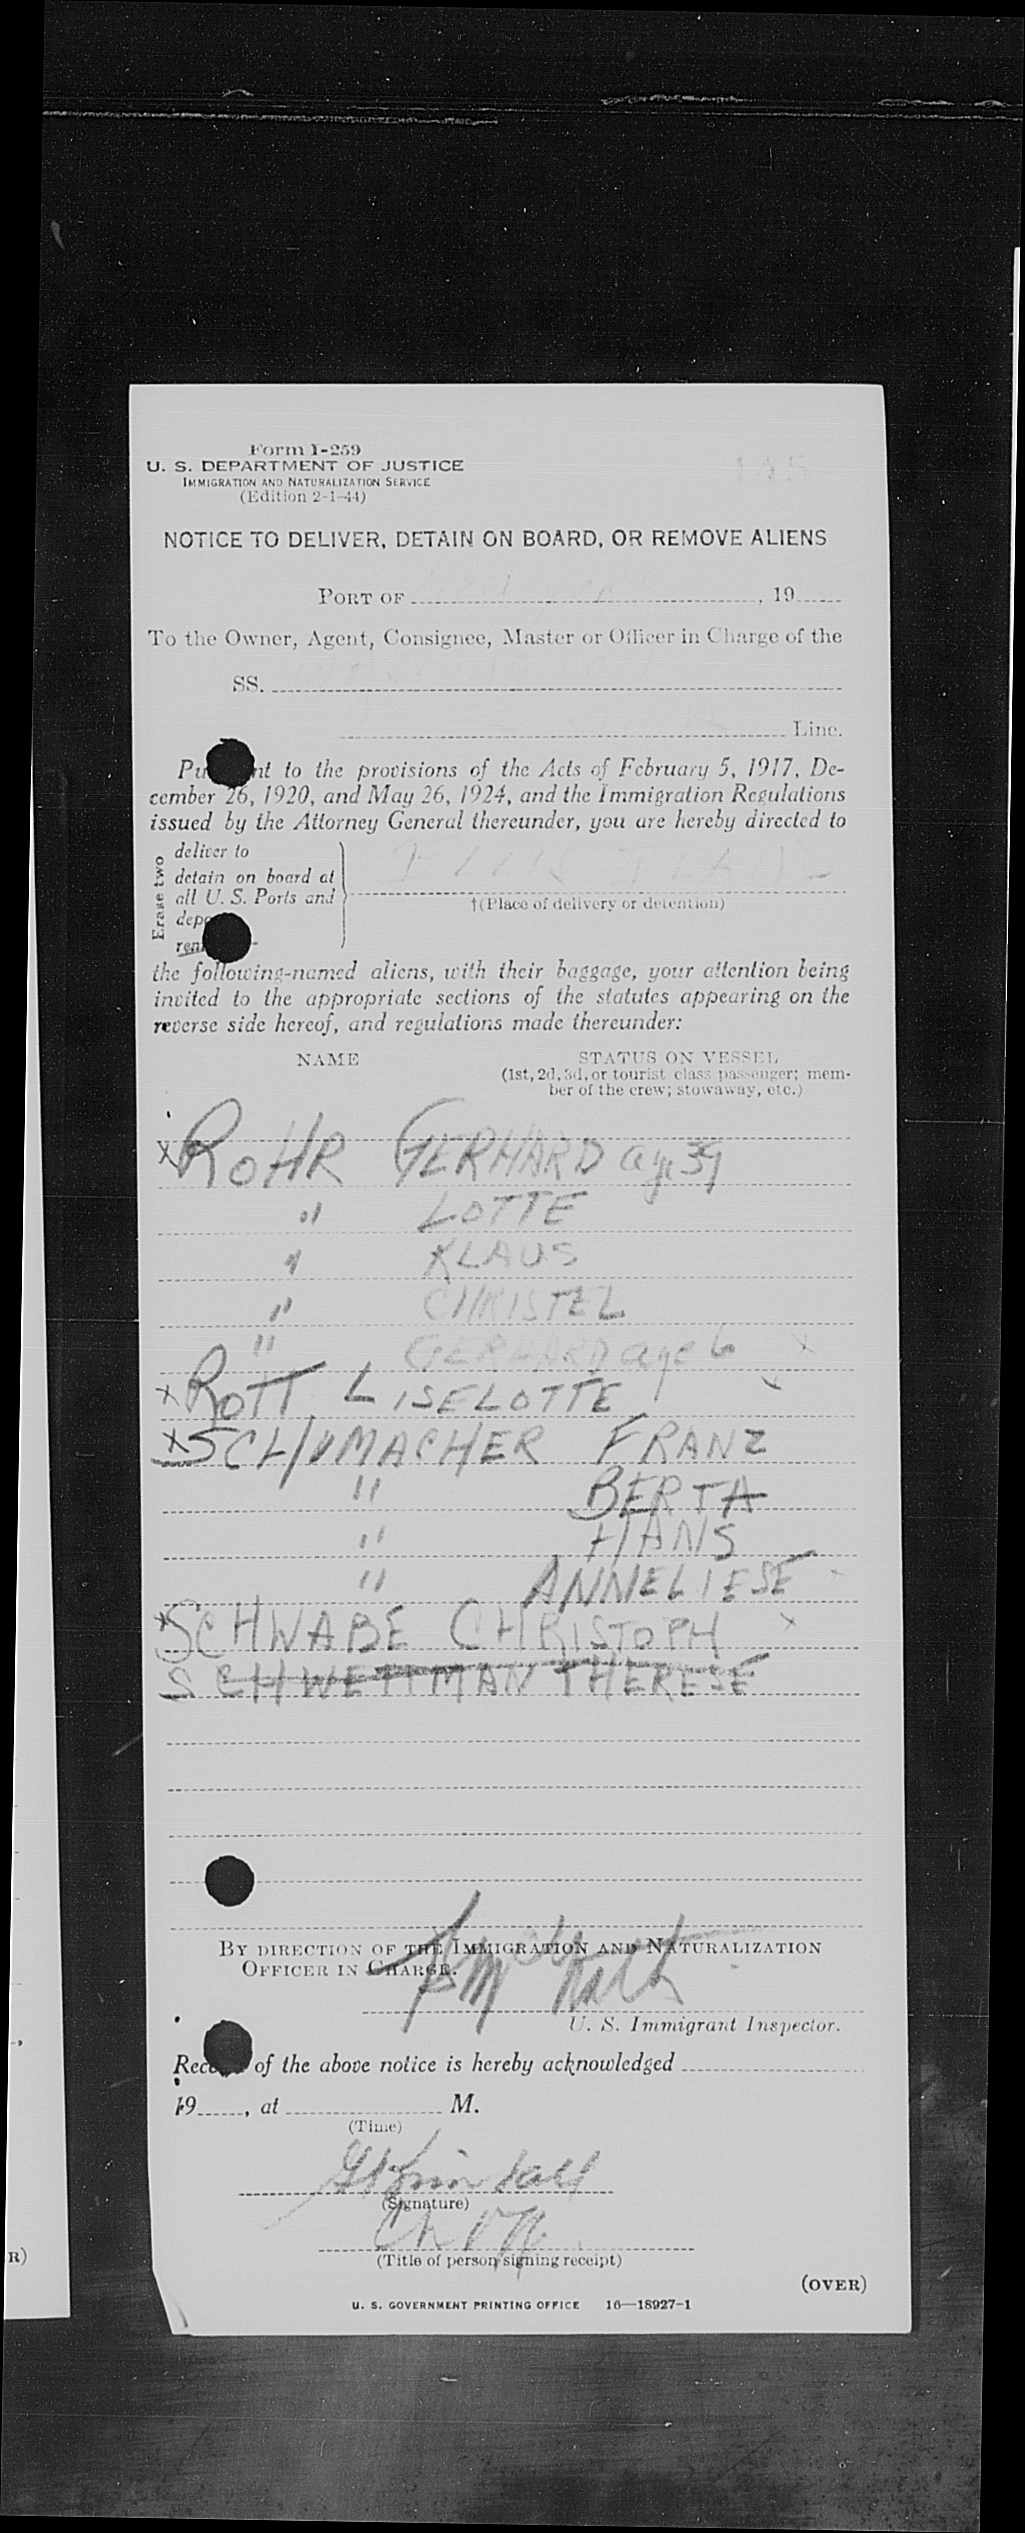 Form I-259
U. S. DEPARTMENT OF JUSTICE
IMMIGRATION AND NATURALIZATION SERVICE
(Edition 2-1-44)
NOTICE TO DELIVER, DETAIN ON BOARD, OR REMOVE ALIENS
PORT OF , 19
To the Owner, Agent, Consignee, Master or Officer in Charge of the
SS.
Line.
to the provisions of the Acts of February 5, 1917, De-
cember 26, 1920, and May 26, 1924, and the Immigration Regulations
issued by the Attorney General thereunder, you are hereby directed to
Erase two
deliver to
detain on board at
all U. S. Ports and
†(Place of delivery or detention)
the following-named aliens, with their baggage, your attention being
invited to the appropriate sections of the statutes appearing on the
reverse side hereof, and regulations made thereunder:
NAME STATUS ON VESSEL
(1st, 2d, 3d, or tourist class passenger; mem-
ber of the crew; stowaway, etc.)
x ROHR GERHARD age 39
" LOTTE
" KLAUS
" CHRISTEL
" GERHARD age 6 x
x ROTT LISELOTTE
x SCHUMACHER FRANZ
" BERTA
" HANS
" ANNELIESE
x SCHWABE CHRISTOPH x
SCHWETTMAN THERESE
BY DIRECTION OF THE IMMIGRATION AND NATURALIZATION
OFFICER IN CHARGE.
U. S. Immigrant Inspector.
of the above notice is hereby acknowledged
19 , at M.
(Time)
(Signature)
(Title of person signing receipt)
(OVER)
U. S. GOVERNMENT PRINTING OFFICE 16—18927-1
R)